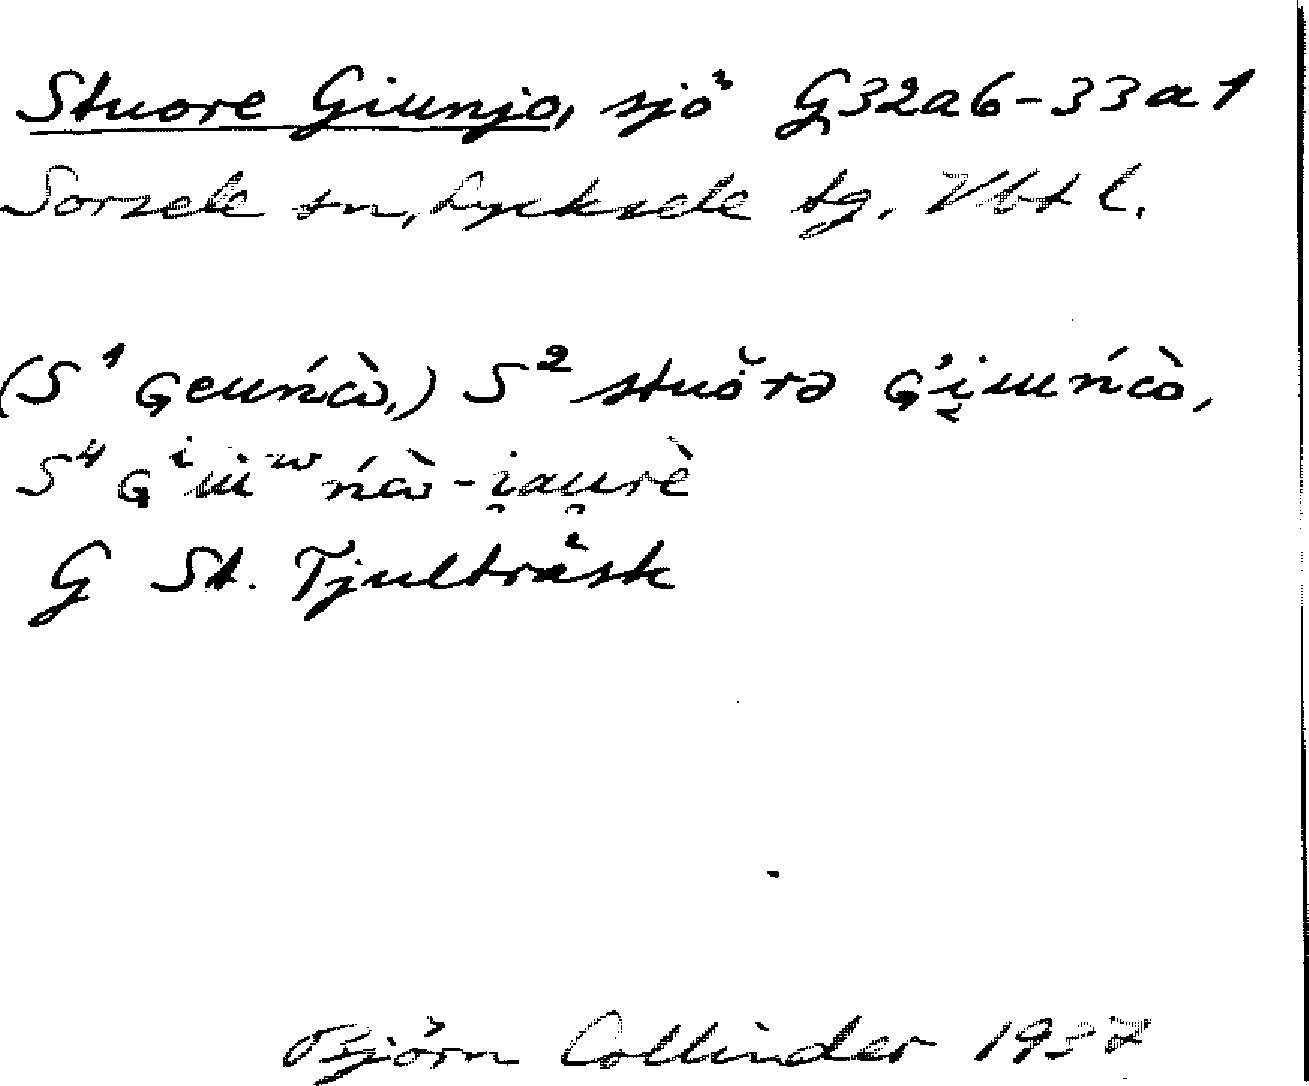 Stuore Giunjo, sjö G32a6-33a1
Sorsele sn, Lycksele tg. Vbt l.
(S¹ Geuńcò,) S² stuŏrə G'i̯uńcò,
S⁴ Gⁱüʷńcò-i̯au̯rè
G St. Tjulträsk
Björn Collinder 1937